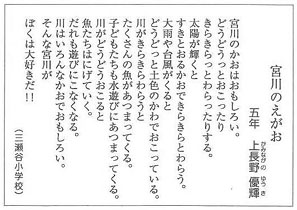 宮川のえがお
五年　上長野　優輝
かみながの　ゆうき
宮川のかおはおもしろい。
どうどうっとおこったり
きらきらっとわらったりする。
太陽が輝くと
すきとおるかおできらきらとわらう。
大雨や台風がくると
どうどっと土色のかわでおこっている。
川がきらきらわらうと
たくさんの魚があつまってくる。
子どもたちも水遊びにあつまってくる。
川がどうどうおこると
魚たちはにげていく。
だれも遊びにこなくなる。
川はいろんなかおでおもしろい。
そんな宮川が
ぼくは大好きだ！！
（三瀬谷小学校）